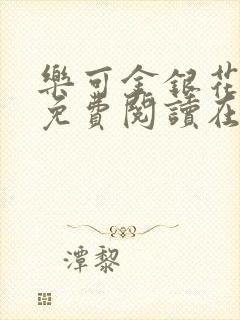 樂可金銀花
免費閱讀在
潭黎